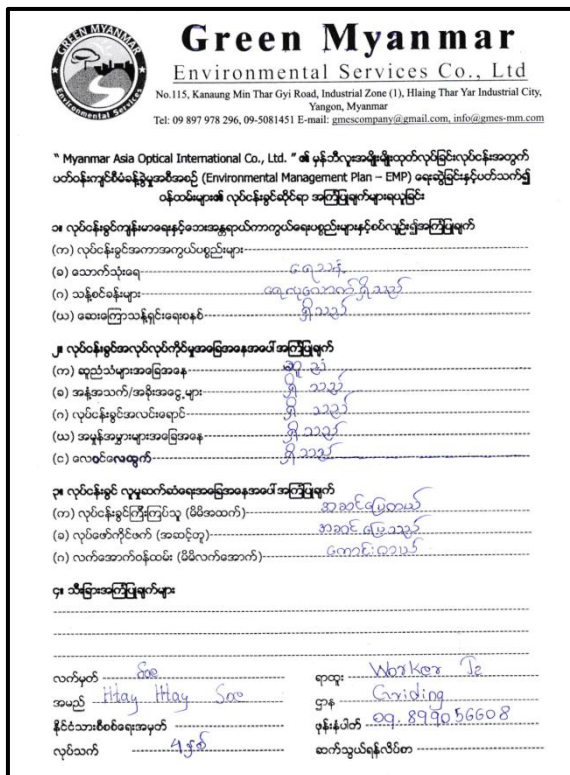 GREEN MYANMAR
Environmental Services
Green Myanmar
Environmental Services Co., Ltd
No.115, Kanaung Min Thar Gyi Road, Industrial Zone (1), Hlaing Thar Yar Industrial City,
Yangon, Myanmar
Tel: 09 897 978 296, 09-5081451 E-mail: gmescompany@gmail.com, info@gmes-mm.com
“ Myanmar Asia Optical International Co., Ltd. ” ၏ မှန်ဘီလူးအမျိုးမျိုးထုတ်လုပ်ခြင်းလုပ်ငန်းအတွက်
ပတ်ဝန်းကျင်စီမံခန့်ခွဲမှုအစီအစဉ် (Environmental Management Plan – EMP) ရေးဆွဲခြင်းနှင့်ပတ်သက်၍
ဝန်ထမ်းများ၏ လုပ်ငန်းခွင်ဆိုင်ရာ အကြံပြုချက်များရယူခြင်း
၁။ လုပ်ငန်းခွင်ကျန်းမာရေးနှင့်ဘေးအန္တရာယ်ကာကွယ်ရေးပစ္စည်းများနှင့်စပ်လျဉ်း၍အကြံပြုချက်
(က) လုပ်ငန်းခွင်အကာအကွယ်ပစ္စည်းများ
(ခ) သောက်သုံးရေ ရေသန့်
(ဂ) သန့်စင်ခန်းများ ရေလုံလောက်ရှိသည်
(ဃ) ဆေးကြောသန့်ရှင်းရေးစနစ် ရှိသည်
၂။ လုပ်ငန်းခွင်အလုပ်လုပ်ကိုင်မှုအခြေအနေအပေါ် အကြံပြုချက်
(က) ဆူညံသံများအခြေအနေ ဆူညံ
(ခ) အနံ့အသက်/အခိုးအငွေ့များ ရှိသည်
(ဂ) လုပ်ငန်းခွင်အလင်းရောင် ရှိသည်
(ဃ) အမှုန်အမွှားများအခြေအနေ ရှိသည်
(င) လေဝင်လေထွက် ရှိသည်
၃။ လုပ်ငန်းခွင် လူမှုဆက်ဆံရေးအခြေအနေအပေါ် အကြံပြုချက်
(က) လုပ်ငန်းခွင်ကြီးကြပ်သူ (မိမိအထက်) အဆင်ပြေတယ်
(ခ) လုပ်ဖော်ကိုင်ဖက် (အဆင့်တူ) အဆင်ပြေသည်
(ဂ) လက်အောက်ဝန်ထမ်း (မိမိလက်အောက်) ကောင်းတယ်
၄။ သီးခြားအကြံပြုချက်များ
လက်မှတ် Soe ရာထူး Worker
အမည် Htay Htay Soe ဌာန Griding
နိုင်ငံသားစိစစ်ရေးအမှတ် ဖုန်းနံပါတ် 09. 899056608
လုပ်သက် ၅နှစ် ဆက်သွယ်ရန်လိပ်စာ